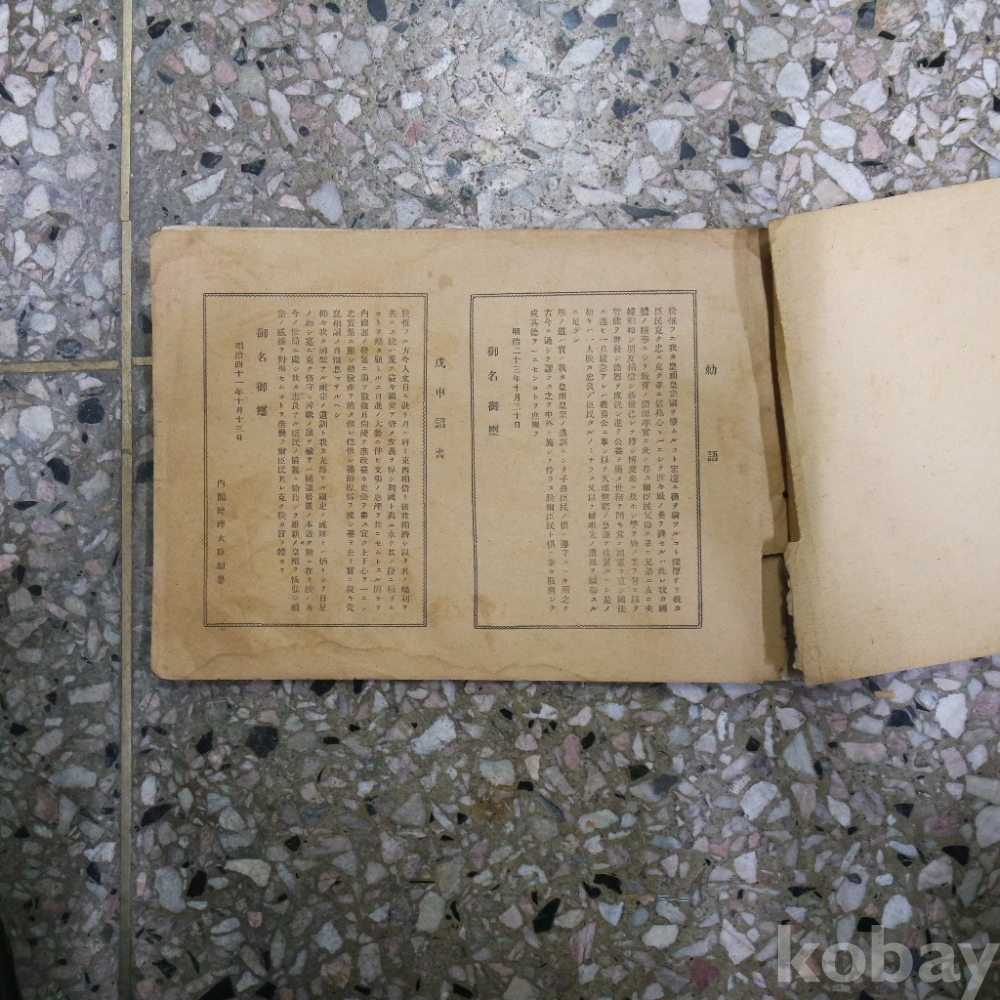 勅語
朕惟フニ我カ皇祖皇宗國ヲ肇ムルコト宏遠ニ德ヲ樹ツルコト深厚ナリ我カ
臣民克ク忠ニ克ク孝ニ億兆心ヲ一ニシテ世々厥ノ美ヲ濟セルハ此レ我カ國
體ノ精華ニシテ敎育ノ淵源亦實ニ此ニ存ス爾臣民父母ニ孝ニ兄弟ニ友ニ夫
婦相和シ朋友相信シ恭儉己レヲ持シ博愛衆ニ及ホシ學ヲ修メ業ヲ習ヒ以テ
智能ヲ啓發シ德器ヲ成就シ進テ公益ヲ廣メ世務ヲ開キ常ニ國憲ヲ重シ國法
ニ遵ヒ一旦緩急アレハ義勇公ニ奉シ以テ天壤無窮ノ皇運ヲ扶翼スヘシ是ノ
如キハ獨リ朕カ忠良ノ臣民タルノミナラス又以テ爾祖先ノ遺風ヲ顯彰スル
ニ足ラン
斯ノ道ハ實ニ我カ皇祖皇宗ノ遺訓ニシテ子孫臣民ノ俱ニ遵守スヘキ所之ヲ
古今ニ通シテ謬ラス之ヲ中外ニ施シテ悖ラス朕爾臣民ト俱ニ拳々服膺シテ
咸其德ヲ一ニセンコトヲ庶幾フ
明治二十三年十月三十日
御名御璽
戊申詔書
朕惟フニ方今人文日ニ就リ月ニ將ミ東西相倚リ彼此相濟シ以テ其ノ福利ヲ
共ニス朕ハ爰ニ益々國交ヲ修メ友義ヲ惇シ列國ト與ニ永ク其ノ慶ニ賴ラム
コトヲ期ス顧ミルニ日進ノ大勢ニ伴ヒ文明ノ惠澤ヲ共ニセムトスル固ヨリ
內國運ノ發展ニ須ツ戰後日尙淺ク庶政益々更張ヲ要ス宜ク上下心ヲ一ニシ
忠實業ニ服シ勤儉產ヲ治メ惟レ信惟レ義醇厚俗ヲ成シ華ヲ去リ實ニ就キ荒
怠相誡メ自彊息マサルヘシ
抑々我カ神聖ナル祖宗ノ遺訓ト我カ光輝アル國史ノ成跡トハ炳トシテ日星
ノ如シ寔ニ克ク恪守シ淬礪ノ誠ヲ輸サハ國運發展ノ本近ク斯ニ在リ朕ハ方
今ノ世局ニ處シ我カ忠良ナル臣民ノ協翼ニ倚藉シテ維新ノ皇猷ヲ恢弘シ祖
宗ノ威德ヲ對揚セムコトヲ庶幾フ爾臣民其レ克ク朕カ旨ヲ體セヨ
御名御璽
明治四十一年十月十三日
內閣總理大臣副署
kobay